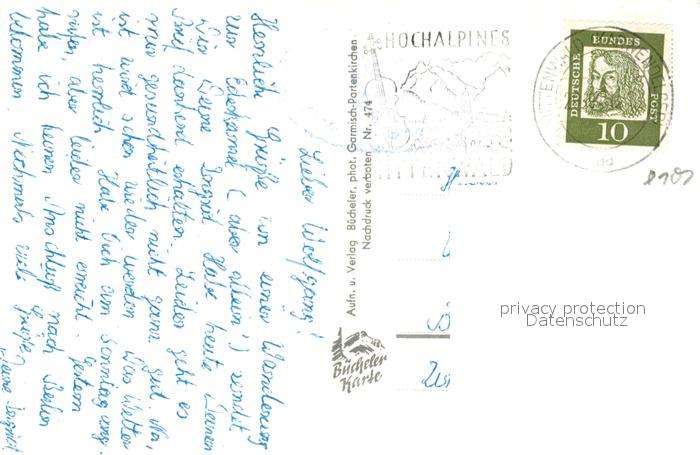 Lieber Wolfgang!
Herzliche Grüße von einer Wanderung
zur Ederkanzel (aber allein!) sendet
Dir Deine Habe heute Deinen
Brief dankend erhalten. Leider geht es
mir gesundheitlich nicht ganz gut. Na,
ist wird schon wieder werden. Das Wetter
ist herrlich. Habe Dich am Sonntag ange-
rufen, aber leider nicht erreicht. Gestern
habe ich keinen Anschluß nach Berlin
bekommen. Nochmals viele Grüße,
Deine
Aufn. u. Verlag Bücheler, phot. Garmisch-Partenkirchen
Nachdruck verboten · Nr. 474
Bücheler
Karte
HOCHALPINES
MITTENWALD
DEUTSCHE BUNDESPOST
10
privacy protection
Datenschutz